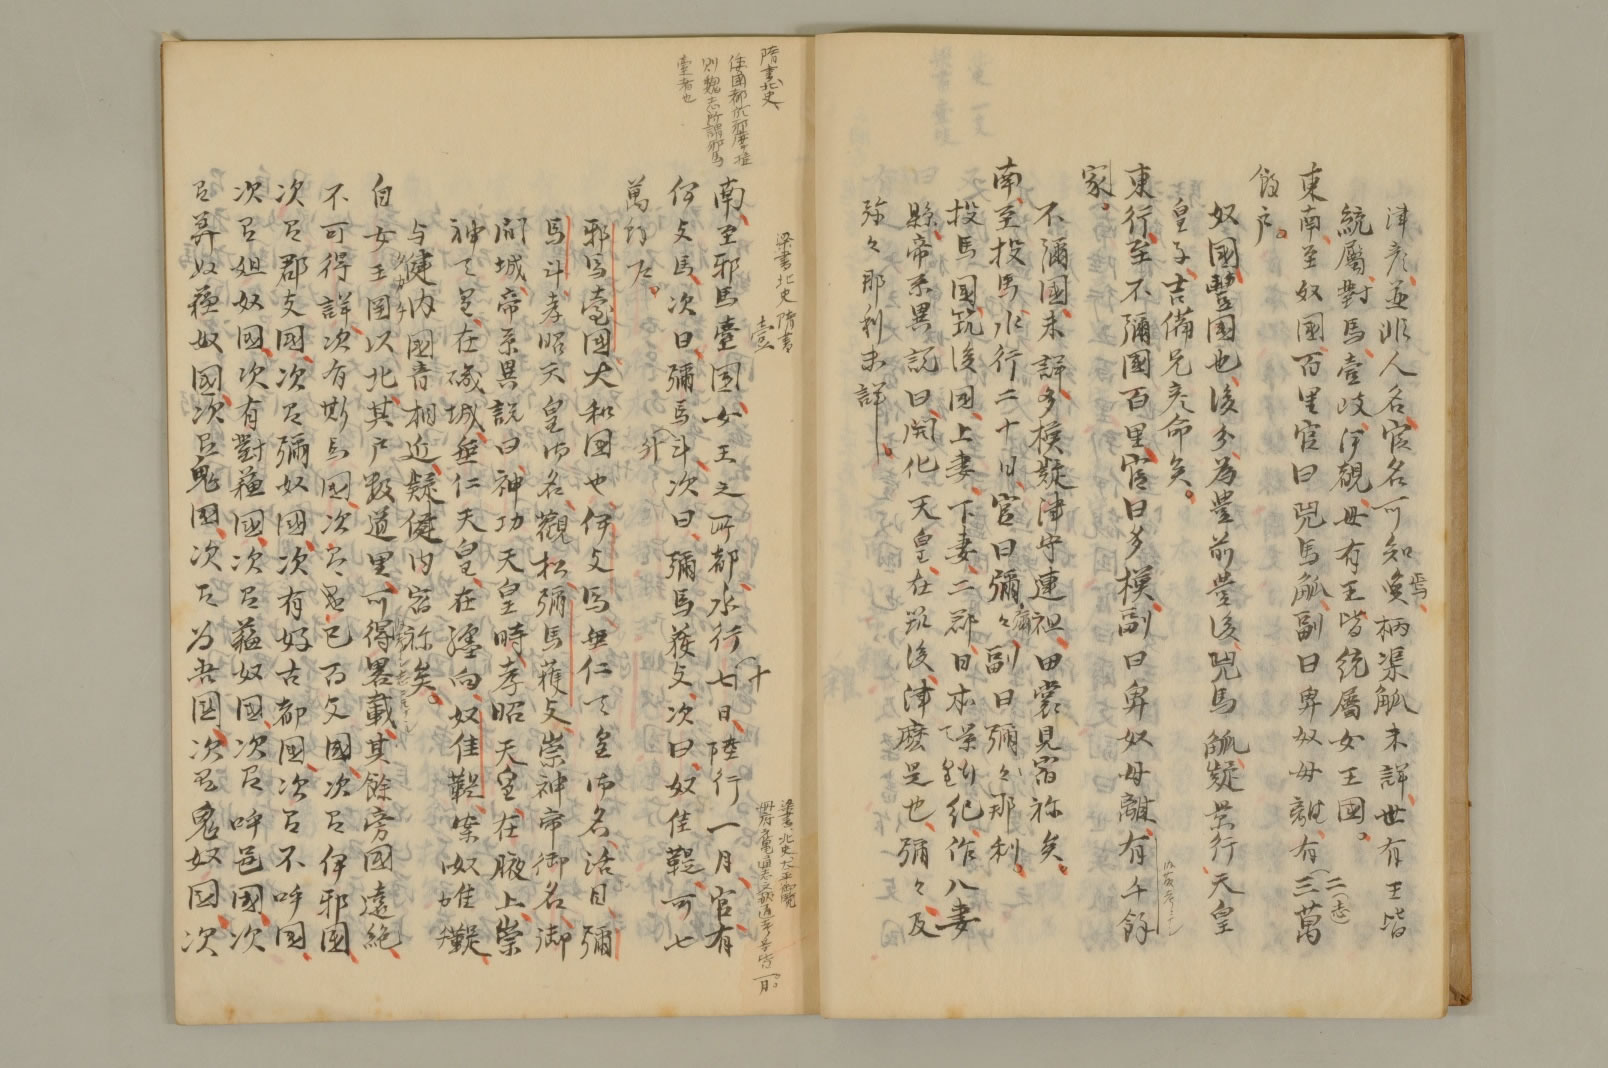 津彦並非人名官名可知焉柄渠觚未詳世有王皆
統屬對馬壹岐伊覩毋有王皆統屬女王國
東南至奴國百里官曰兕馬觚副曰卑奴母離有二(志)三萬
餘戸
奴國豐国也後分為豊前豊後兕馬觚疑景行天皇
皇子吉備兄彦命矣
東行至不彌國百里官曰多模副曰卑奴母離有千餘
家
不彌國未詳多模疑津守連祖田裳見宿祢矣
南至投馬水行二十日官曰彌々副曰彌々那利
投馬国筑後国上妻下妻二郡日本紀作八妻
縣帝系異説曰開化天皇在筑後津麼是也彌々及
弥々那利未詳
隋書北史
倭國都於邪摩堆
則魏志所謂邪馬
臺者也
梁書北史隋書
壹
南至邪馬臺国女王之所都水行十七日陸行一月官有
梁書北史太平御覧
一月
伊支馬次曰彌馬升斗次曰彌馬獲支次曰奴佳鞮可七
萬餘戸
邪馬臺国大和国也伊支馬垂仁天皇御名活目彌
馬斗孝昭天皇御名觀松彌馬獲支崇神帝御名御
間城帝系異説曰神功天皇時孝昭天皇在腋上崇
神天皇在磯城垂仁天皇在纏向奴佳鞮案奴佳鞮
与健内國音相近疑健内宿祢矣
自女王国以北其戸数道里可得畧載其餘旁國遠絶
不可得詳次有斯馬国次有已百支國次有伊邪國
次有郡支国次有彌奴國次有好古都國次有不呼国
次有姐奴國次有對蘇國次有蘇奴國次有呼邑國次
有華奴蘇奴國次有鬼国次有為吾国次有鬼奴国次